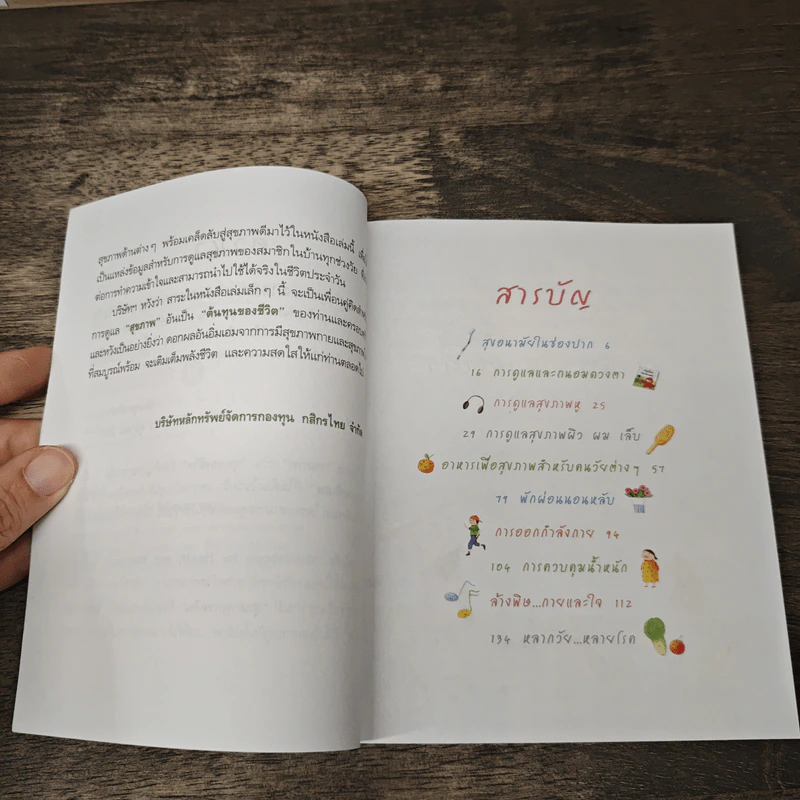 สุขภาพด้านต่างๆ พร้อมเคล็ดลับสู่สุขภาพดีมาไว้ในหนังสือเล่มนี้
เป็นแหล่งข้อมูลสำหรับการดูแลสุขภาพของสมาชิกในบ้านทุกช่วงวัย
ต่อการทำความเข้าใจและสามารถนำไปใช้ได้จริงในชีวิตประจำวัน
บริษัทฯ หวังว่า สาระในหนังสือเล่มเล็กๆ นี้ จะเป็นเพื่อนคู่คิดสำหรับ
การดูแล "สุขภาพ" อันเป็น "ต้นทุนของชีวิต" ของท่านและครอบครัว
และหวังเป็นอย่างยิ่งว่า ดอกผลอันอิ่มเอมจากการมีสุขภาพกายและสุขภาพ
ที่สมบูรณ์พร้อม จะเติมเต็มพลังชีวิต และความสดใสให้แก่ท่านตลอดไป
บริษัทหลักทรัพย์จัดการกองทุน กสิกรไทย จำกัด
สารบัญ
สุขอนามัยในช่องปาก 6
16 การดูแลและถนอมดวงตา
การดูแลสุขภาพหู 25
29 การดูแลสุขภาพผิว ผม เล็บ
อาหารเพื่อสุขภาพสำหรับคนวัยต่างๆ 57
79 พักผ่อนนอนหลับ
การออกกำลังกาย 94
104 การควบคุมน้ำหนัก
ล้างพิษ...กายและใจ 112
134 หลากวัย...หลายโรค